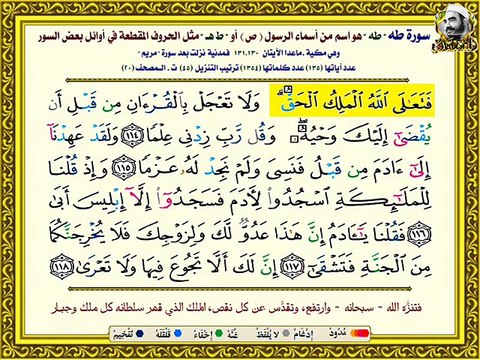 سورة طه - طه - هو اسم من أسماء الرسول ( ص ) أو - ط هـ - مثل الحروف المقطعة في أوائل بعض السور
وهي مكية .ماعدا الآيتان ١٣٠-١٣١ فمدنية نزلت بعد سورة - مريم -
عدد آياتها (١٣٥) عدد كلماتها (١٣٥٤) ترتيب التنزيل (٤٥) ت . المصحف (٢٠)
فَتَعَٰلَى ٱللَّهُ ٱلْمَلِكُ ٱلْحَقُّ ۗ وَلَا تَعْجَلْ بِٱلْقُرْءَانِ مِن قَبْلِ أَن
يُقْضَىٰٓ إِلَيْكَ وَحْيُهُۥ ۖ وَقُل رَّبِّ زِدْنِى عِلْمًا ١١٤ وَلَقَدْ عَهِدْنَآ
إِلَىٰٓ ءَادَمَ مِن قَبْلُ فَنَسِىَ وَلَمْ نَجِدْ لَهُۥ عَزْمًا ١١٥ وَإِذْ قُلْنَا
لِلْمَلَٰٓئِكَةِ ٱسْجُدُوا۟ لِءَادَمَ فَسَجَدُوٓا۟ إِلَّآ إِبْلِيسَ أَبَىٰ
١١٦ فَقُلْنَا يَٰٓـَٔادَمُ إِنَّ هَٰذَا عَدُوٌّ لَّكَ وَلِزَوْجِكَ فَلَا يُخْرِجَنَّكُمَا
مِنَ ٱلْجَنَّةِ فَتَشْقَىٰٓ ١١٧ إِنَّ لَكَ أَلَّا تَجُوعَ فِيهَا وَلَا تَعْرَىٰ ١١٨
فتنزَّه الله - سبحانه - وارتفع، وتقدَّس عن كل نقص، الملك الذي قهر سلطانه كل ملك وجبار
مُدُود إدْغَام لا يُلفَظ غُنَّة إخْفَاء قَلْقَلَة تَفْخِيم